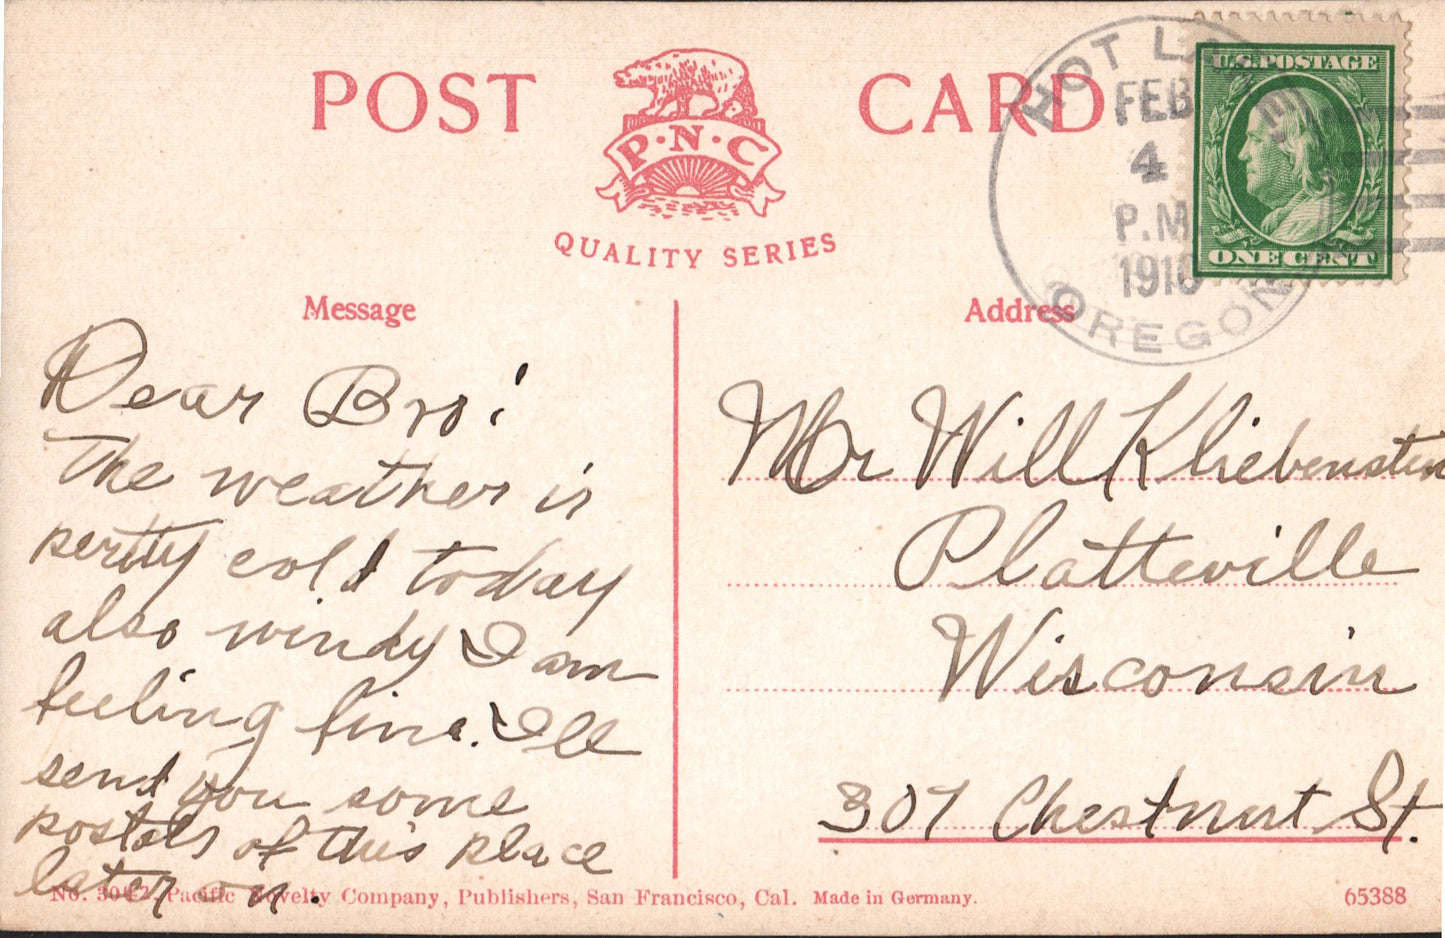 POST CARD
P·N·C
QUALITY SERIES
HOT LAKE
FEB
4
P.M
1910
OREGON
U.S. POSTAGE
ONE CENT
Message
Address
Dear Bro!
The weather is
pertty cold today
also windy I am
feeling fine. I'll
send you some
postals of this place
later on.
Mr Will Kliebenstein
Platteville
Wisconsin
307 Chestnut St.
No. 3042. Pacific Novelty Company, Publishers, San Francisco, Cal. Made in Germany.
65388